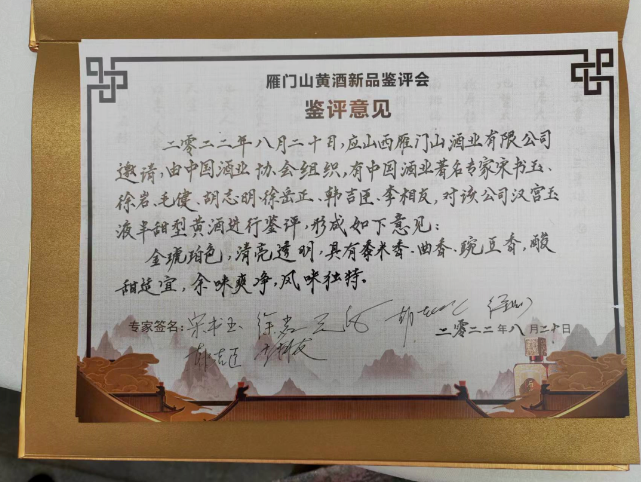 雁门山黄酒新品鉴评会
鉴评意见
二零二二年八月二十日，应山西雁门山酒业有限公司
邀请，由中国酒业协会组织，有中国酒业著名专家宋书玉、
徐岩、毛健、胡志明、徐岳正、韩吉臣、李相友，对该公司汉宫玉
液半甜型黄酒进行鉴评，形成如下意见：
金琥珀色，清亮透明，具有黍米香、曲香、豌豆香，酸
甜适宜，余味爽净，风味独特。
专家签名：宋书玉 徐岩
二零二二年八月二十日
韩吉臣 李相友